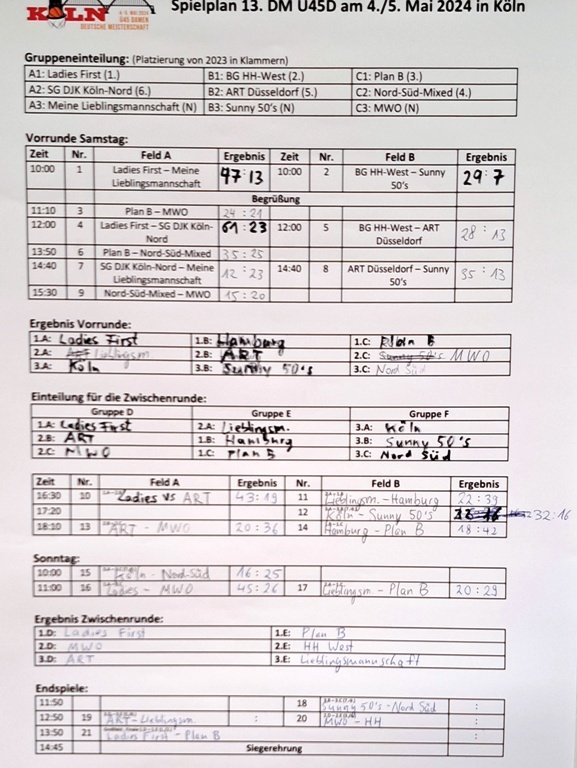 KÖLN 4./5. MAI 2024
Ü45 DAMEN
DEUTSCHE MEISTERSCHAFT
Spielplan 13. DM Ü45D am 4./5. Mai 2024 in Köln
Gruppeneinteilung: (Platzierung von 2023 in Klammern)
A1: Ladies First (1.) B1: BG HH-West (2.) C1: Plan B (3.)
A2: SG DJK Köln-Nord (6.) B2: ART Düsseldorf (5.) C2: Nord-Süd-Mixed (4.)
A3: Meine Lieblingsmannschaft (N) B3: Sunny 50's (N) C3: MWO (N)
Vorrunde Samstag:
Zeit Nr. Feld A Ergebnis Zeit Nr. Feld B Ergebnis
10:00 1 Ladies First – Meine Lieblingsmannschaft 47:13 10:00 2 BG HH-West – Sunny 50's 29:7
Begrüßung
11:10 3 Plan B – MWO 24:21
12:00 4 Ladies First – SG DJK Köln-Nord 61:23 12:00 5 BG HH-West – ART Düsseldorf 28:13
13:50 6 Plan B – Nord-Süd-Mixed 35:25
14:40 7 SG DJK Köln-Nord – Meine Lieblingsmannschaft 12:23 14:40 8 ART Düsseldorf – Sunny 50's 35:13
15:30 9 Nord-Süd-Mixed – MWO 15:20
Ergebnis Vorrunde:
1.A: Ladies First 1.B: Hamburg 1.C: Plan B
2.A: Lieblingsm. 2.B: ART 2.C: Sunny 50's MWO
3.A: Köln 3.B: Sunny 50's 3.C: Nord Süd
Einteilung für die Zwischenrunde:
Gruppe D Gruppe E Gruppe F
1.A: Ladies First 2.A: Lieblingsm. 3.A: Köln
2.B: ART 1.B: Hamburg 3.B: Sunny 50's
2.C: MWO 1.C: Plan B 3.C: Nord Süd
Zeit Nr. Feld A Ergebnis Nr. Feld B Ergebnis
16:30 10 Ladies vs ART 43:19 11 Lieblingsm. - Hamburg 22:39
17:20 12 Köln - Sunny 50's 32:16
18:10 13 ART - MWO 20:36 14 Hamburg - Plan B 18:42
Sonntag:
10:00 15 Köln - Nord-Süd 16:25
11:00 16 Ladies - MWO 45:26 17 Lieblingsm. - Plan B 20:29
Ergebnis Zwischenrunde:
1.D: Ladies First 1.E: Plan B
2.D: MWO 2.E: HH West
3.D: ART 3.E: Lieblingsmannschaft
Endspiele:
11:50 18 Sunny 50's - Nord Süd :
12:50 19 ART - Lieblingsm. : 20 MWO - HH :
13:50 21 Ladies First - Plan B :
14:45 Siegerehrung